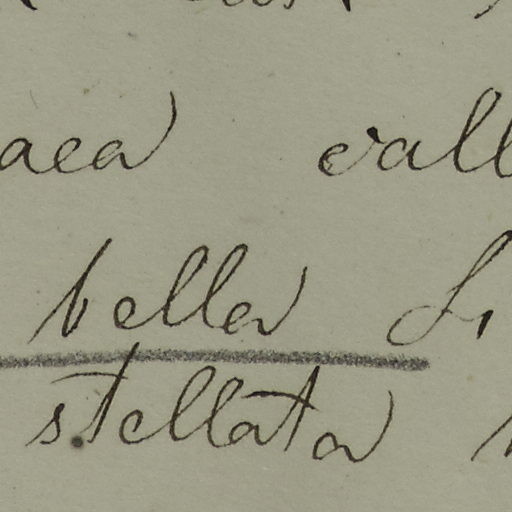 aea call
bella L,
stellata